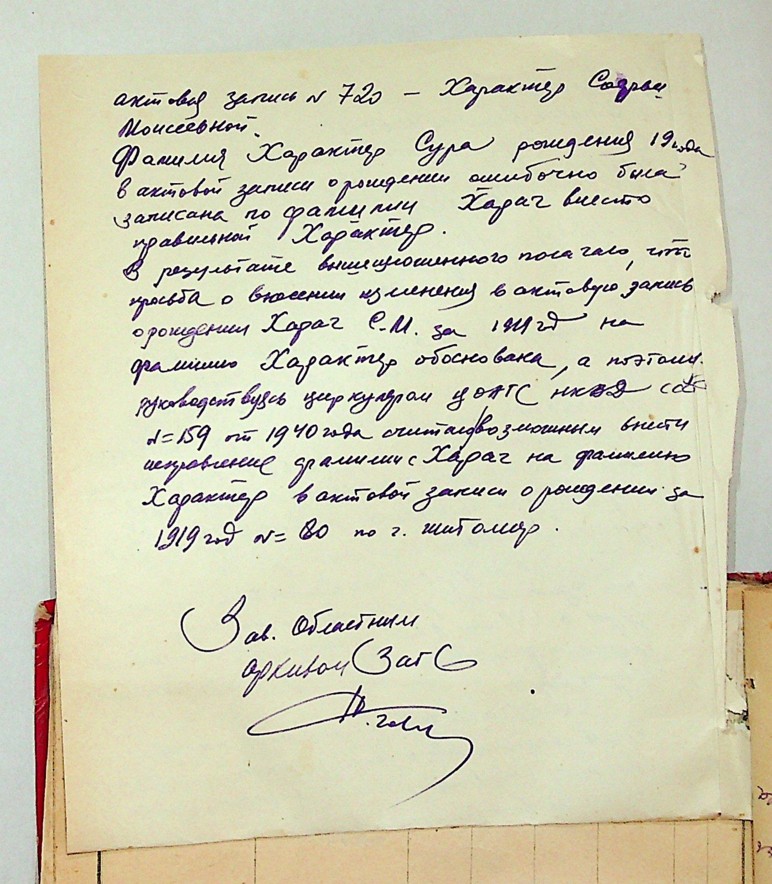 актовая запись № 720 — Характер
Моисеевной.
Фамилия Характер Сура рождения 19 года
в актовой записи о рождении ошибочно была
записана по фамилии Харач вместо
правильной Характер.
В результате вышеизложенного полагаю, что
просьба о внесении изменения в актовую запись
о рождении Харач С.М. за 1919 год на
фамилию Характер обоснована, а поэтому
руководствуясь циркуляром ЦОАГС НКВД
№ 159 от 1940 года считаю возможным внести
исправление фамилии с Харач на фамилию
Характер в актовой записи о рождении за
1919 год № 80 по г. Житомир.
Зав. Областным
архивом ЗАГС